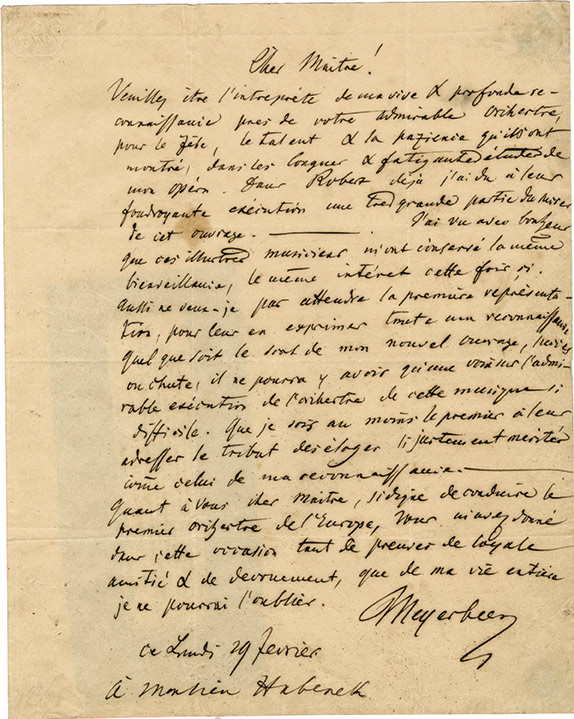 Cher Maitre!
Veuillez être l'interprète de ma vive & profonde re-
connaissance près de votre admirable Orchestre,
pour le Zêle, le talent & la patience qu'ils ont
montré, dans les longues & fatigantes études de
mon opéra. Dans Robert déjà j'ai dû à leur
foudroyante exécution une tres grande partie du succes
de cet ouvrage. — J'ai vu avec bonheur
que ces illustres musiciens m'ont conservé la même
bienveillance, le même intérêt cette fois ci.
Aussi ne veux-je pas attendre la première représenta-
tion, pour leur en exprimer toute ma reconnaissance.
Quel que soit le sort de mon nouvel ouvrage, succès
ou chute, il ne pourra y avoir qu'une voix sur l'admi-
rable exécution de l'orchestre de cette musique si
difficile. Que je sois au moins le premier à leur
adresser le tribut des éloges si justement mérités
come celui de ma reconnaissance. —
Quant à Vous cher Maitre, si digne de conduire le
premier orchestre de l'Europe, Vous m'avez donné
dans cette occasion tant de preuves de loyale
amitié & de devouement, que de ma vie entière
je ne pourrai l'oublier.
Meyerbeer
ce Lundi 29 fevrier
à Monsieur Habeneck